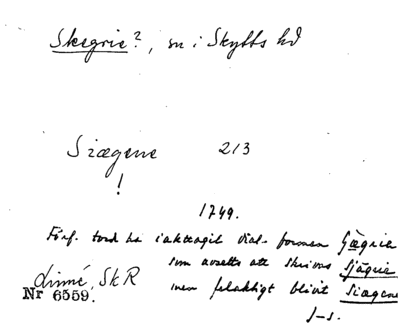 Skegrie?, sn i Skytts hd
Siægene 213
!
1749.
Förf. tord ha iakttagit dial. formen Sjägrie
som avsetts att skrivas sjägrie
men felaktigt blivit siægene
Linné, SkR
Nr 6559.
J-s.